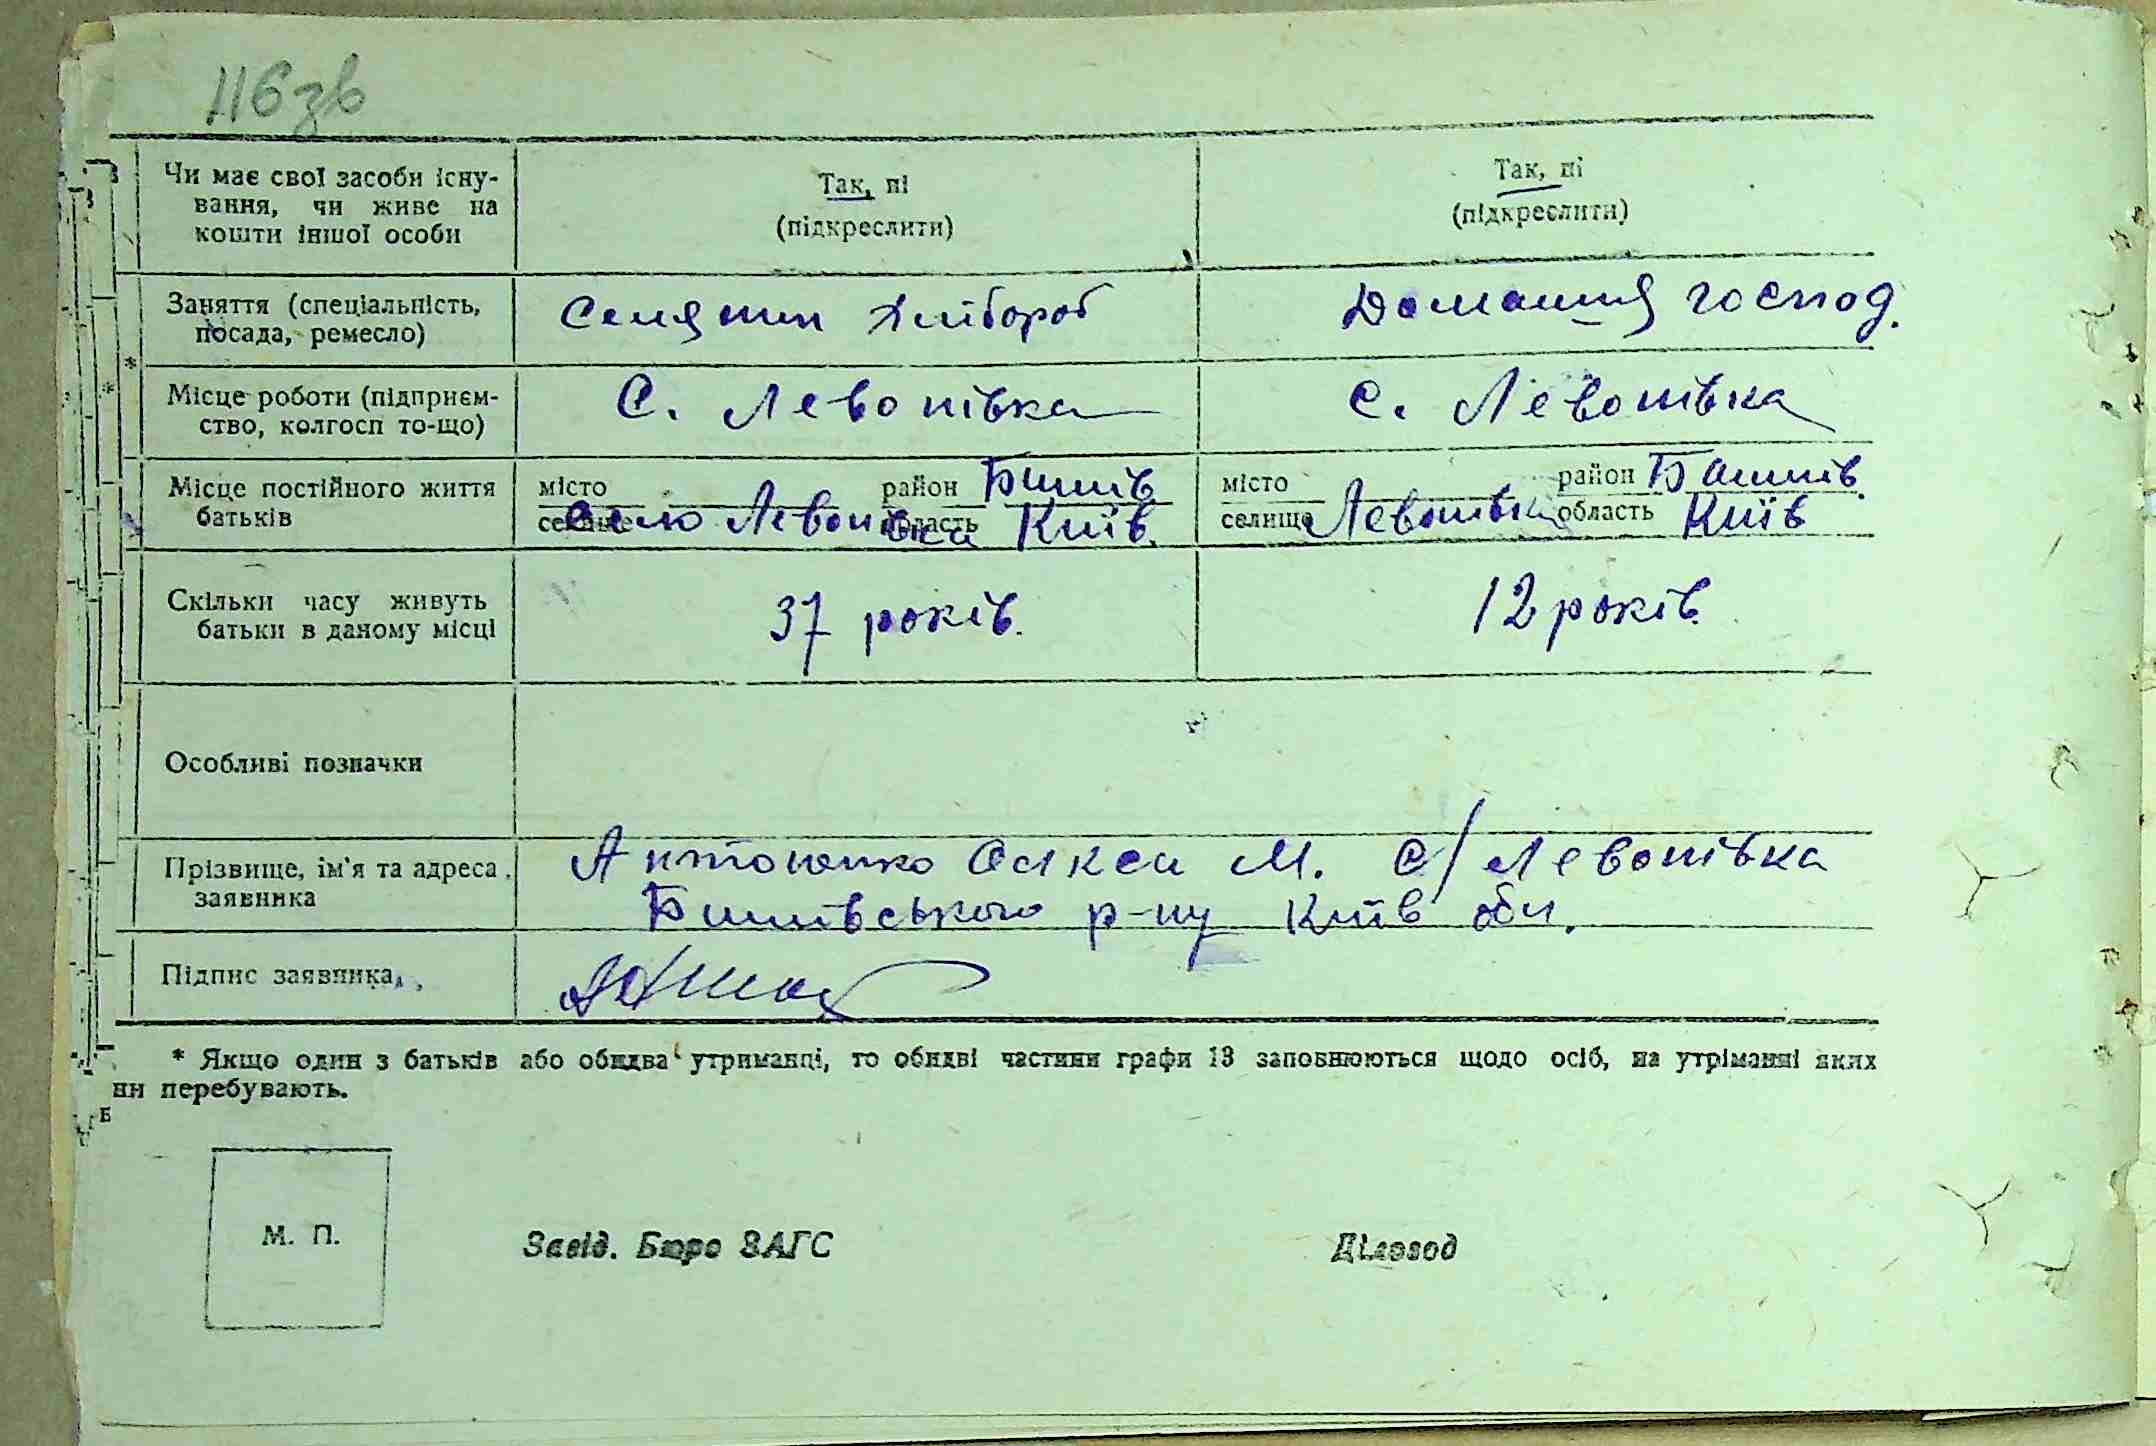 116зв
Чи має свої засоби існу-
вання, чи живе на
кошти іншої особи
Так, ні
(підкреслити)
Так, ні
(підкреслити)
Заняття (спеціальність,
посада, ремесло)
Селянин Хлібороб
Домашня господ.
Місце роботи (підприєм-
ство, колгосп то-що)
С. Левонівка
С. Левонівка
Місце постійного життя
батьків
місто
селище
село Левонівка
район Бишів
область Київ.
місто
селище Левонівка
район Бишів.
область Київ
Скільки часу живуть
батьки в даному місці
37 років.
12 років.
Особливі позначки
Прізвище, ім'я та адреса
заявника
Антоненко Олкса М. С/Левонівка
Бишівського р-ну Київ обл.
Підпис заявника
* Якщо один з батьків або обидва утриманці, то обидві частини графи 13 заповнюються щодо осіб, на утріманні яких
ни перебувають.
Б
М. П.
Завід. Бюро ЗАГС
Діловод